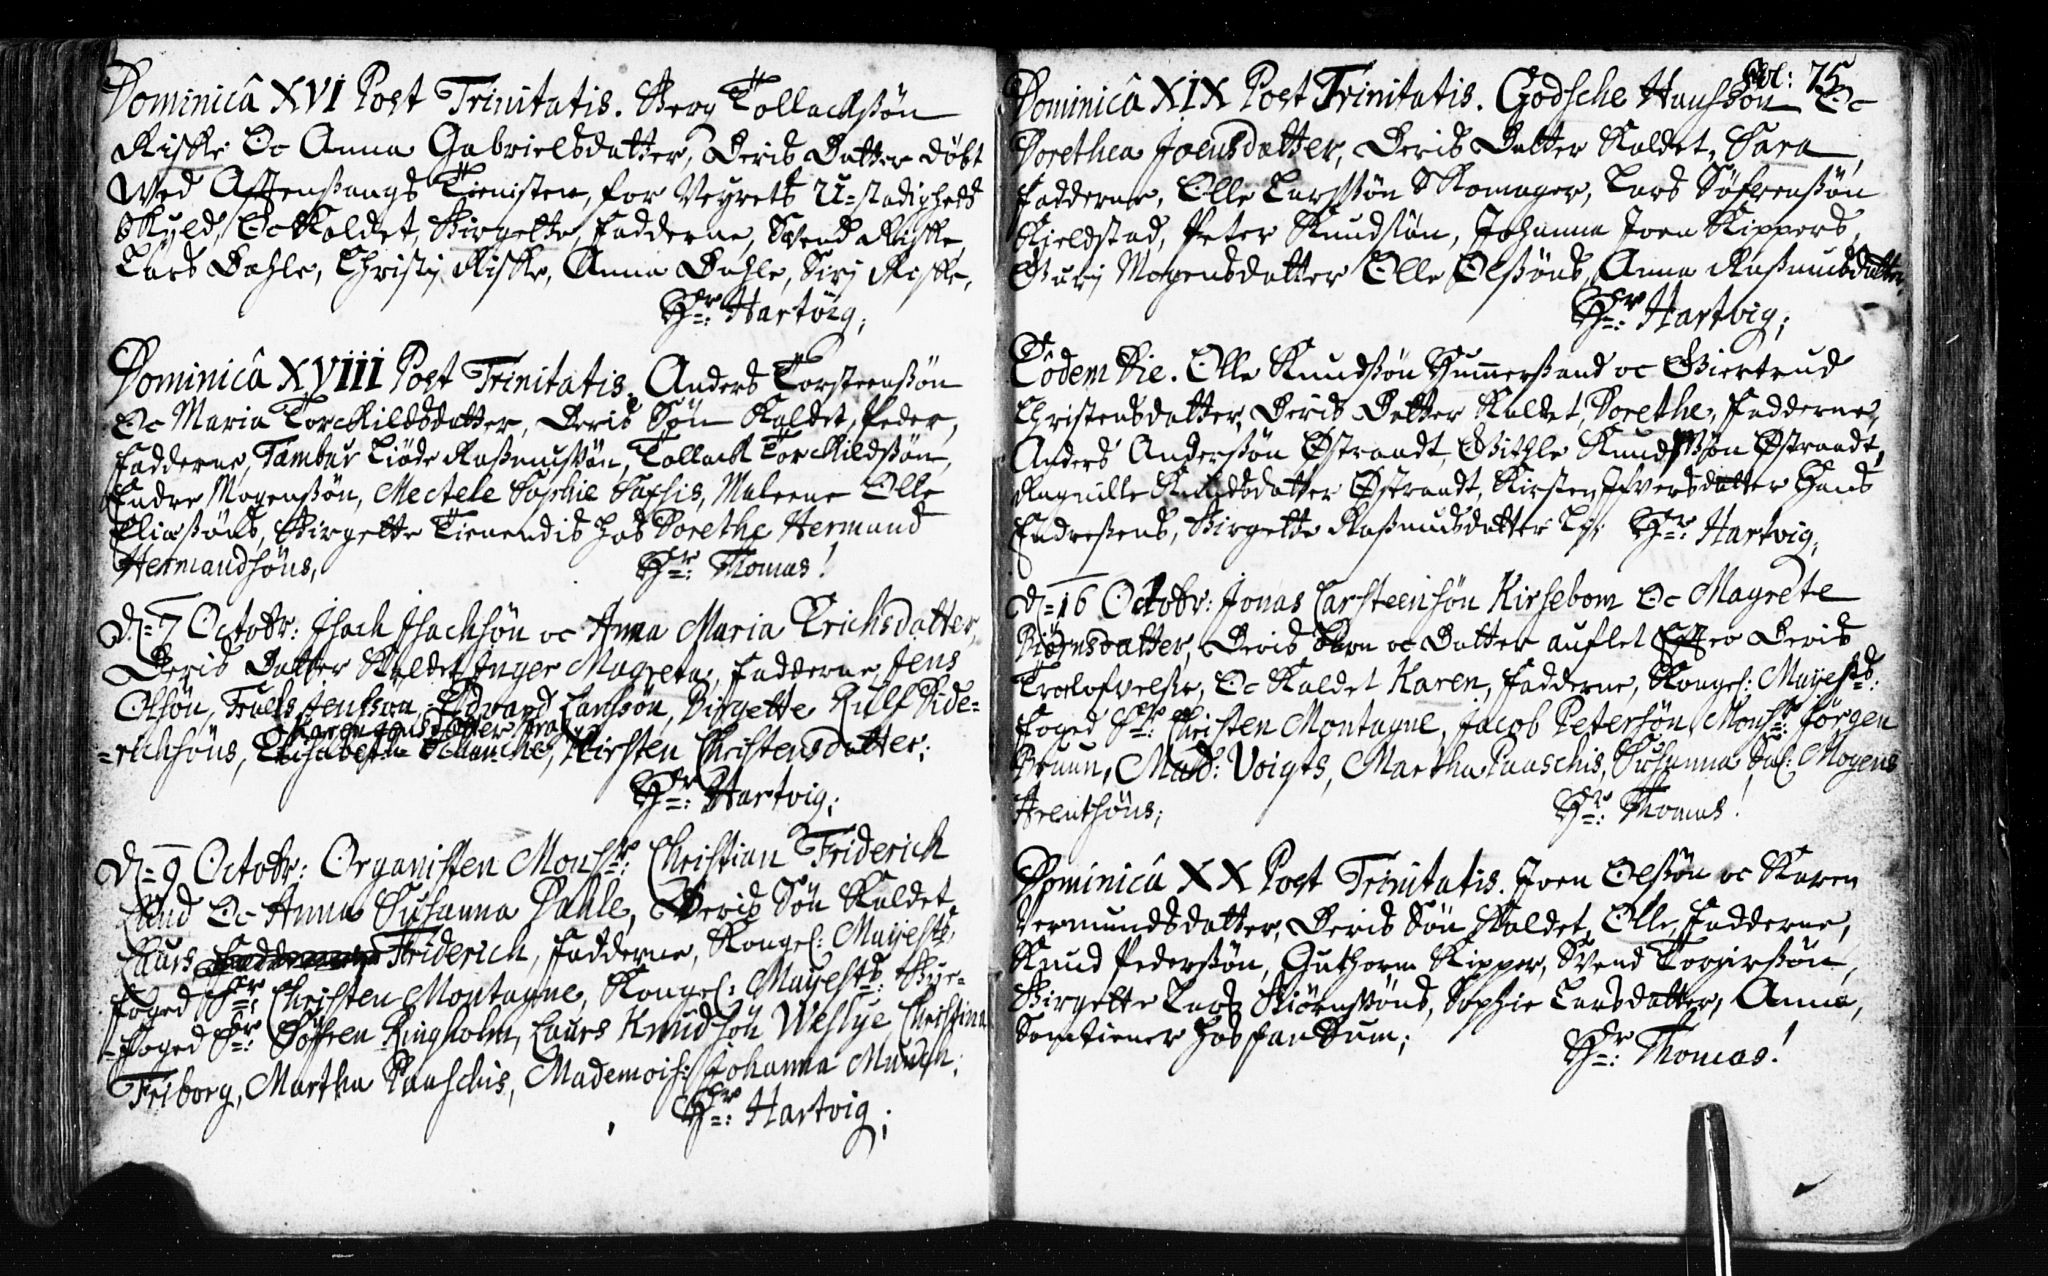 Dominicâ XVI Post Trinitatis. Berg Tollachßön
Riske Oc Anna Gabrielsdatter, Deris Datter döbt
Wed Afftenßangs Tienisten, for Veyrets U=stadigheds
Skyld, Oc Kaldet, Birgette, Fadderne, Svend Riske,
Lars Dahle, Christj Riske, Anna Dahle, Sirj Riske,
Hr: Hartvig;
Dominicâ XVIII Post Trinitatis. Anders Torsteenßön
Oc Maria Torckildsdatter, Deris Søn Kaldet, Peder,
Fadderne, Tambur Liöde Raßmusßön, Tollack Torckildßön,
Endre Mogenßön, Mectele Sophie Saxsis, Maleene Olle
Eliaßöns, Birgette Tienendis hos Dorethe Hermand
Hermandsöns, Hr: Thomas!
D=7 Octobr: Isach Isachsön oc Anna Maria Erichsdatter,
Deris Datter Kaldet Inger Magreta, Fadderne, Jens
Olsön, Truels Jensson, Edvard Larsön, Birgette Rulf Dide=
=richsöns, Kirsten Christensdatter;
Hr: Hartvig;
D=9 Octobr: Organisten Monsr: Christian Friderich
Lund Oc Anna Susanna Dahle, Deris Sön Kaldet,
Laurs Friderich, Fadderne, Kongel: Mayests
foged Sr: Christen Montagne, Kongel: Mayests: Bye=
=foged Sr: Söfren Ringholm, Laurs Knudsön Weslye Christina
Friborg, Martha Paaschis, Mademois: Johanna Munch;
Hr: Hartvig;
Fol: 75
Dominicâ XIX Post Trinitatis. Godsche Hansßön Oc
Dorethea Joensdatter, Deris Datter Kaldet, Sara,
Fadderne, Olle Larsßön Skomager, Lars Söfrenßön
Kieldstad, Peter Knudsön, Johanna Joen Kippers,
Gurj Mogensdatter Olle Olßöns, Anna Raßmusdatter,
Hr: Hartvig;
Eôdem Die. Olle Knudßön Hummerßand oc Giertrud
Christensdatter, Deris Datter Kaldet, Dorethe, Fadderne,
Anders Anderßön Østraadt, Githle Knudßön Østraadt,
Ragnille Knudsdatter Østraadt, Kirsten Ifversdatter Hans
Endreßens, Birgette Raßmusdatter Lj; Hr: Hartvig;
D=16 Octobr: Jonas Carsteensön Kirsebom Oc Magrete
Biörnsdatter, Deris Barn oc Datter auflet Effter Deris
Trolofvelse, Oc Kaldet Karen, Fadderne, Kongel: Mayests:
foged Sr: Christen Montagne, Jacob Petersön, Monsr: Jörgen
Bruun, Mad: Voigts, Martha Paaschis, Susanna Sal: Mogens
Arentsöns; Hr: Thomas!
Dominicâ XX Post Trinitatis. Joen Olßön oc Karen
Vermundsdatter, Deris Sön Kaldet, Olle, Fadderne,
Knud Pederßön, Guthorm Kipper, Svend Torgirßön,
Birgette Lars Biörnßöns, Sophie Larsdatter, Anna,
Somtiener hos Jan Sum;
Hr: Thomas!